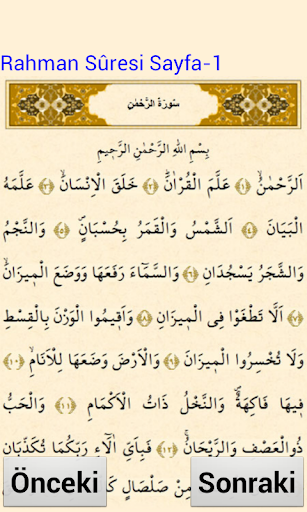 Rahman Sûresi Sayfa-1
سُورَةُ الرَّحْمٰنِ
بِسْمِ اللهِ الرَّحْمٰنِ الرَّحِيمِ
اَلرَّحْمٰنُۙ ﴿١﴾ عَلَّمَ الْقُرْاٰنَۜ ﴿٢﴾ خَلَقَ الْاِنْسَانَۙ ﴿٣﴾ عَلَّمَهُ
الْبَيَانَ ﴿٤﴾ اَلشَّمْسُ وَالْقَمَرُ بِحُسْبَانٍۖ ﴿٥﴾ وَالنَّجْمُ
وَالشَّجَرُ يَسْجُدَانِ ﴿٦﴾ وَالسَّمَٓاءَ رَفَعَهَا وَوَضَعَ الْمٖيزَانَۙ
﴿٧﴾ اَلَّا تَطْغَوْا فِى الْمٖيزَانِ ﴿٨﴾ وَاَقٖيمُوا الْوَزْنَ بِالْقِسْطِ
وَلَا تُخْسِرُوا الْمٖيزَانَ ﴿٩﴾ وَالْاَرْضَ وَضَعَهَا لِلْاَنَامِۙ ﴿١٠﴾
فٖيهَا فَاكِهَةٌۖ وَالنَّخْلُ ذَاتُ الْاَكْمَامِۖ ﴿١١﴾ وَالْحَبُّ
ذُوالْعَصْفِ وَالرَّيْحَانُۚ ﴿١٢﴾ فَبِاَىِّ اٰلَٓاءِ رَبِّكُمَا تُكَذِّبَانِ
مِنْ صَلْصَالٍ
Önceki
Sonraki